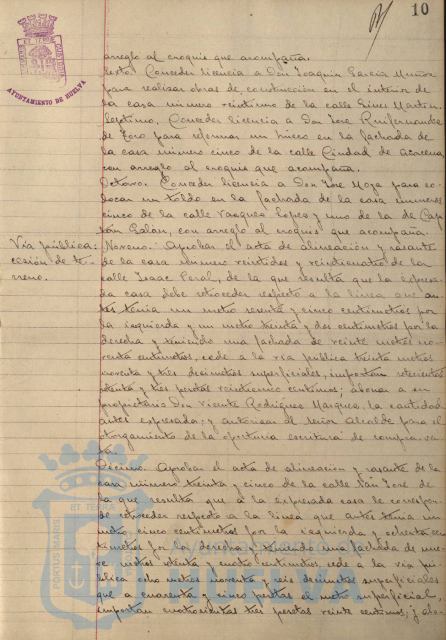 10
AYUNTAMIENTO DE HUELVA
arreglo al croquis que acompaña.
Sexto. Conceder licencia a Don Joaquin Garcia Muñoz
para realizar obras de construcción en el interior de
la casa número veintiuno de la calle Gines Martin.
Septimo. Conceder licencia a Don José Ruifernandez
de Toro para reformar un hueco en la fachada de
la casa número cinco de la calle Ciudad de Aracena
con arreglo al croquis que acompaña.
Octavo. Conceder licencia a Don José Moya para co-
locar un toldo en la fachada de la casa numeros
cinco de la calle Vazquez Lopez y uno de la de Cap
tán Galán, con arreglo al croquis que acompaña.
Via pública:
cesión de te-
rreno.
Noveno. Aprobar el acta de alineación y rasante
de la casa número veintidos y veinticuatro de la
calle Isaac Peral, de la que resulta que la expresa-
da casa debe retroceder respecto a la linea que an
tes tenia un metro sesenta y cinco centimetros por
la izquierda y un metro treinta y dos centimetros por la
derecha y teniendo una fachada de veinte metros no-
venta centimetros, cede a la via publica treinta metros
noventa y tres decimetros superficiales, importan setecientas
setenta y tres pesetas veinticinco centimos; abonar a su
propietario Don Vicente Rodriguez Marquez, la cantidad
antes expresada; y autorizar al señor Alcalde para el
otorgamiento de la oportuna escritura de compra-ven
ta.
Decimo. Aprobar el acta de alineacion y rasante de la
casa número treinta y cinco de la calle San José de
la que resulta que a la expresada casa le correspon-
de retroceder respecto a la linea que antes tenia un
metro cinco centimetros por la izquierda y ochenta cen
timetros por la derecha y teniendo una fachada de nue-
ve metros setenta y cuatro centimetros cede a la via pú-
blica ocho metros noventa y seis decimetros superficiales
que a cuarenta y cinco pesetas el metro superficial,
importan cuatrocientas tres pesetas veinte centimos; y abo-
PORTUS MARIS
ET TERRÆ